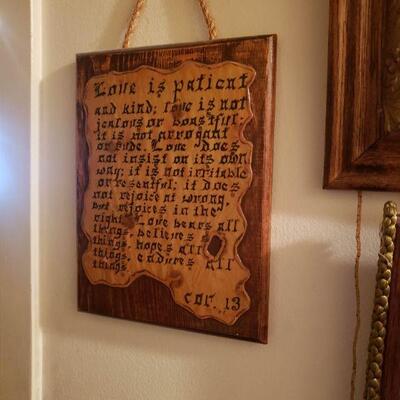 Love is patient
and kind; love is not
jealous or boastful;
it is not arrogant
or rude. Love does
not insist on its own
way; it is not irritable
or resentful; it does
not rejoice at wrong,
but rejoices in the
right. Love bears all
things, believes all
things, hopes all
things, endures all
things.
cor. 13